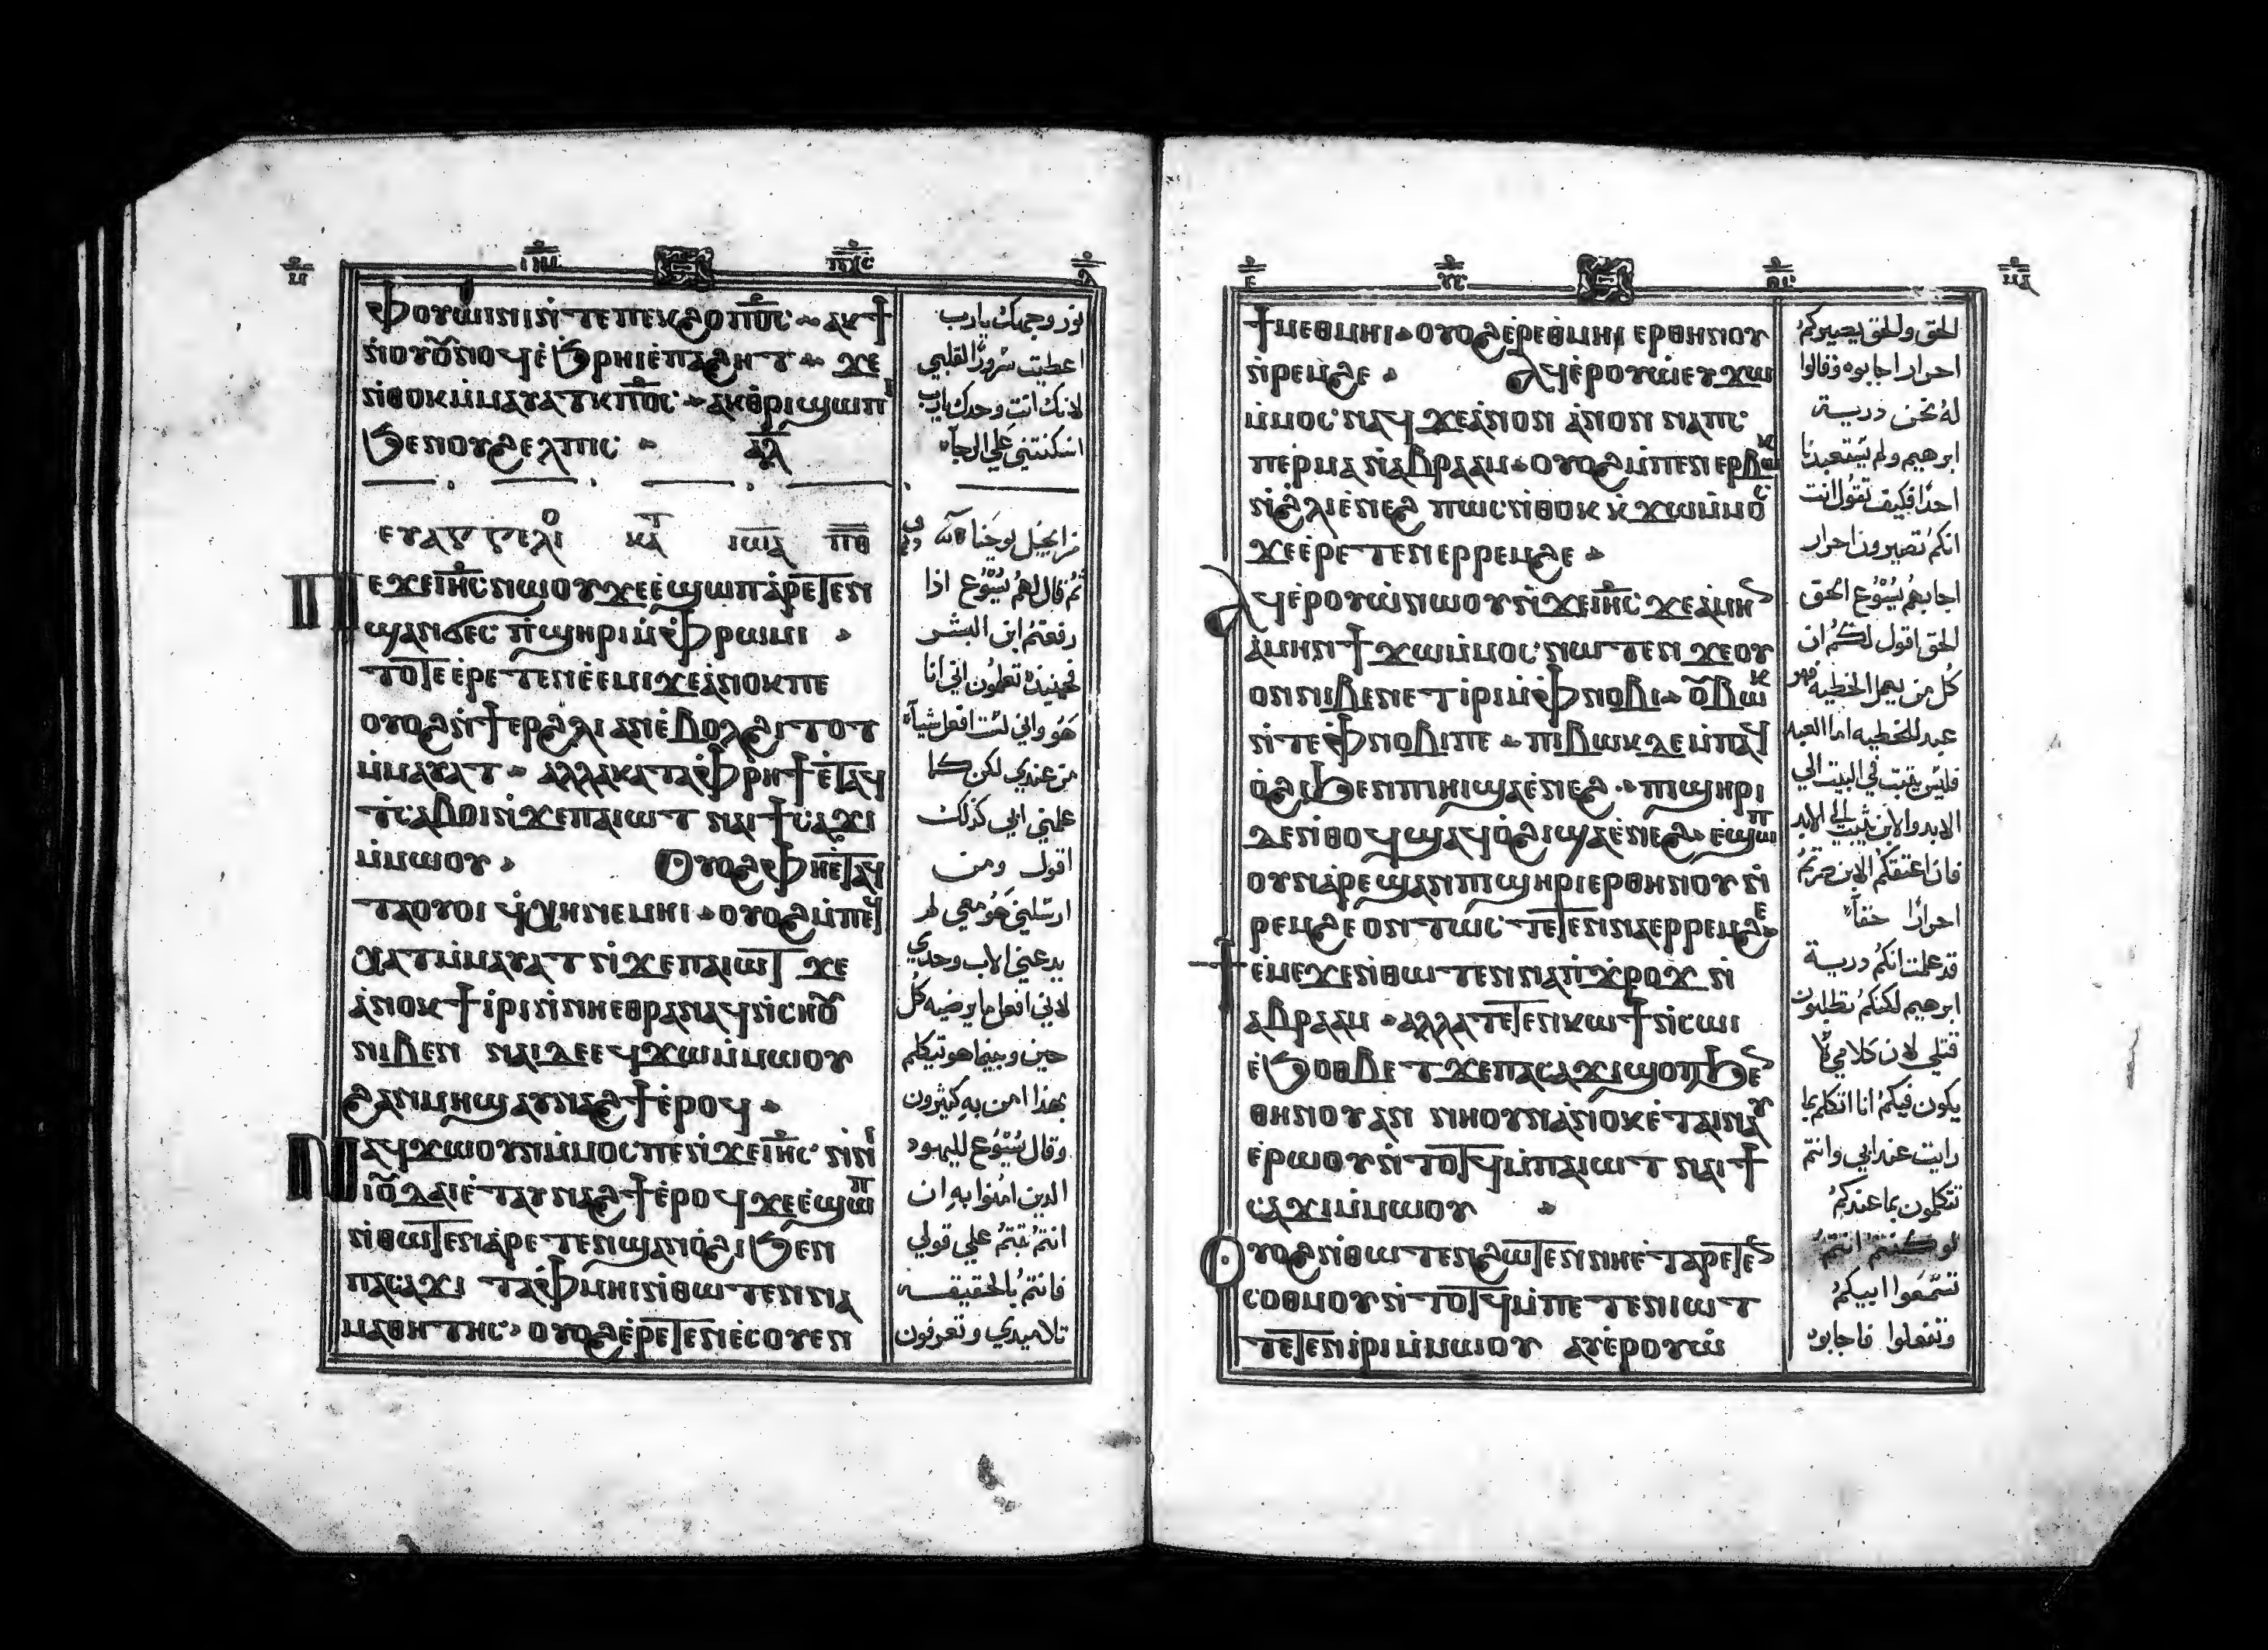 ⲫⲟⲩⲱⲓⲛⲓ ⲛ̇ⲧⲉ ⲡⲉⲕϩⲟ ⲡ̅ⲟ̅ⲥ̅ ⲁⲕϯ
ⲛ̇ⲟⲩⲟ̅ⲛⲟϥ ⲉ̇ϧⲣⲏⲓ ⲉ̇ⲡⲁϩⲏⲧ ϫⲉ
ⲛ̇ⲑⲟⲕ ⲙ̇ⲙⲁⲩⲁⲧⲕ ⲡ̅ⲟ̅ⲥ̅ ⲁⲕⲑ̇ⲣⲓϣⲱⲡⲓ
ϧⲉⲛ ⲟⲩϩⲉⲗⲡⲓⲥ ⲁ̅ⲗ̅
ⲉⲩⲁⲅⲅⲉⲗⲓⲟ ⲕⲁⲧ ⲓⲱⲁ ⲡ̅ⲑ̅
ⲡⲉϫⲉ ⲓ̅ⲏ̅ⲥ̅ ⲛⲱⲟⲩ ϫⲉ ⲉ̇ϣⲱⲡ ⲁ̇ⲣⲉⲧⲉⲛ
ϣⲁⲛϭⲉⲥ ⲡ̇ϣⲏⲣⲓ ⲙ̇ⲫⲣⲱⲙⲓ
ⲧⲟⲧⲉ ⲉ̇ⲣⲉⲧⲉⲛⲉ̇ⲉ̇ⲙⲓ ϫⲉ ⲁ̇ⲛⲟⲕ ⲡⲉ
ⲟⲩⲟϩ ⲛ̇ϯⲉⲣ ϩⲗⲓ ⲁⲛ ⲉ̇ⲃⲟⲗ ϩⲓⲧⲟⲧ
ⲙ̇ⲙⲁⲩⲁⲧ ⲁⲗⲗⲁ ⲕⲁⲧⲁ ⲫⲣⲏϯ ⲉ̇ⲧⲁϥ
ⲧ̇ⲥⲁⲃⲟⲓ ⲛ̇ϫⲉ ⲡⲁⲓⲱⲧ ⲛⲁⲓ ϯⲥⲁϫⲓ
ⲙ̇ⲙⲱⲟⲩ ⲟⲩⲟϩ ⲫⲏⲉ̇ⲧⲁϥ
ⲧⲁⲟⲩⲟⲓ ϥ̇ⲭⲏ ⲛⲉⲙⲏⲓ ⲟⲩⲟϩ ⲙ̇ⲡⲉϥ
ⲭⲁⲧ ⲙ̇ⲙⲁⲩⲁⲧ ⲛ̇ϫⲉ ⲡⲁⲓⲱⲧ ϫⲉ
ⲁ̇ⲛⲟⲕ ϯⲓ̇ⲣⲓ ⲛ̇ⲛⲏⲉⲑⲣⲁⲛⲁϥ ⲛ̇ⲥⲏⲟⲩ
ⲛⲓⲃⲉⲛ ⲛⲁⲓ ⲇⲉ ⲉϥϫⲱ ⲙ̇ⲙⲱⲟⲩ
ϩⲁⲛⲙⲏϣ ⲁⲩⲛⲁϩϯ ⲉ̇ⲣⲟϥ
ⲛⲁϥϫⲱ ⲟⲩⲛ ⲙ̇ⲙⲟⲥ ⲡⲉ ⲛ̇ϫⲉ ⲓ̅ⲏ̅ⲥ̅ ⲛ̇ⲛⲓ
ⲓⲟ̅ⲇⲁⲓ ⲉ̇ⲧⲁⲩⲛⲁϩϯ ⲉ̇ⲣⲟϥ ϫⲉ ⲉ̇ϣⲱⲡ
ⲛ̇ⲑⲱⲧⲉⲛ ⲁ̇ⲣⲉⲧⲉⲛϣⲁⲛⲟ̇ϩⲓ ϧⲉⲛ
ⲡⲁⲥⲁϫⲓ ⲧⲁⲫⲙⲏⲓ ⲛ̇ⲑⲱⲧⲉⲛ ⲛⲁ
ⲙⲁⲑⲏⲧⲏⲥ ⲟⲩⲟϩ ⲉ̇ⲣⲉⲧⲉⲛⲉ̇ⲥⲟⲩⲉⲛ
نور وجهك يارب
اعطيت سرورًا لقلبي
لانك انت وحدك يارب
اسكنتني علي الرجآء
من انجيل يوحنا
ثم قال لهم يسُوع اذا
رفعتم ابن البشر
فحينيذ تعلمون اني انا
هو واني لست افعل شيآء
من عندي لكن كما
علمني ابي كذلك
اقول ومن
ارسلني هو معي لم
يدعني الاب وحدي
لاني افعل ما يرضيه كل
حين وبينما هو يتكلم
بهذا امن به كثيرون
وقال يسُوع لليهود
الذين امنوا به ان
انتم ثبتم علي قولي
فانتم بالحقيقه
تلاميدي وتعرفون
ϯⲙⲉⲑⲙⲏⲓ ⲟⲩⲟϩ ⲉ̇ⲣⲉ ⲑⲙⲏⲓ ⲉⲣⲑⲏⲛⲟⲩ
ⲛ̇ⲣⲉⲙϩⲉ ⲁϥⲉ̇ⲣⲟⲩⲱ̇ ⲉⲩϫⲱ
ⲙ̇ⲙⲟⲥ ⲛⲁϥ ϫⲉ ⲁ̇ⲛⲟⲛ ⲁ̇ⲛⲟⲛ ⲛⲁ ⲡⲥ
ⲡⲉⲣⲙⲁ ⲛ̇ⲁⲃⲣⲁⲁⲙ ⲟⲩⲟϩ ⲙ̇ⲡⲉⲛⲉⲣⲃⲱⲕ
ⲛ̇ϩⲗⲓ ⲉ̇ⲛⲉϩ ⲡⲱⲥ ⲛ̇ⲑⲟⲕ ⲕ̇ϫⲱ ⲙ̇ⲙⲟⲥ
ϫⲉ ⲉ̇ⲣⲉⲧⲉⲛⲉⲣⲣⲉⲙϩⲉ
ⲁϥⲉ̇ⲣⲟⲩⲱ̇ ⲛⲱⲟⲩ ⲛ̇ϫⲉ ⲓ̅ⲏ̅ⲥ̅ ϫⲉ ⲁ̇ⲙⲏⲛ
ⲁ̇ⲙⲏⲛ ϯϫⲱ ⲙ̇ⲙⲟⲥ ⲛⲱⲧⲉⲛ ϫⲉ ⲟⲩ
ⲟⲛ ⲛⲓⲃⲉⲛ ⲉⲧⲓ̇ⲣⲓ ⲙ̇ⲫⲛⲟⲃⲓ ⲟ̅ⲃⲱⲕ
ⲛ̇ⲧⲉ ⲫⲛⲟⲃⲓ ⲡⲉ ⲡⲓⲃⲱⲕ ⲇⲉ ⲙ̇ⲡⲁϥ
ⲟ̇ϩⲓ ϧⲉⲛ ⲡⲓⲏⲓ ϣⲁ ⲉ̇ⲛⲉϩ ⲡⲓϣⲏⲣⲓ
ⲇⲉ ⲛ̇ⲑⲟϥ ϣⲁϥⲟ̇ϩⲓ ϣⲁ ⲉ̇ⲛⲉϩ ⲉ̇ϣⲱⲡ
ⲟⲩⲛ ⲁ̇ⲣⲉϣⲁⲛ ⲡⲓϣⲏⲣⲓ ⲉⲣⲑⲏⲛⲟⲩ ⲛ̇
ⲣⲉⲙϩⲉ ⲟⲛⲧⲱⲥ ⲧⲉⲧⲉⲛⲛⲁⲉⲣⲣⲉⲙϩⲉ
ϯⲉ̇ⲙⲉ ϫⲉ ⲛ̇ⲑⲱⲧⲉⲛ ⲛⲁ ⲡ̇ϫⲣⲟϫ ⲛ̇
ⲁⲃⲣⲁⲁⲙ ⲁⲗⲗⲁ ⲧⲉⲧⲉⲛⲕⲱϯ ⲛ̇ⲥⲱⲓ
ⲉ̇ϧⲟⲑⲃⲉⲧ ϫⲉ ⲡⲁⲥⲁϫⲓ ϣⲟⲡ ϧⲉⲛ
ⲑⲏⲛⲟⲩ ⲁⲛ ⲛⲏ ⲟⲩⲛ ⲁ̇ⲛⲟⲕ ⲉ̇ⲧⲁⲓⲛⲁⲩ
ⲉ̇ⲣⲱⲟⲩ ⲛ̇ⲧⲟⲧϥ ⲙ̇ⲡⲁⲓⲱⲧ ⲛⲁⲓ ϯ
ⲥⲁϫⲓ ⲙ̇ⲙⲱⲟⲩ
ⲟⲩⲟϩ ⲛ̇ⲑⲱⲧⲉⲛ ϩⲱⲧⲉⲛ ⲛⲏⲉ̇ⲧⲁⲣⲉⲧⲉⲛ
ⲥⲟⲑⲙⲟⲩ ⲛ̇ⲧⲟⲧϥ ⲙ̇ⲡⲉⲧⲉⲛⲓⲱⲧ
ⲧⲉⲧⲉⲛⲓ̇ⲣⲓ ⲙ̇ⲙⲱⲟⲩ ⲁⲩⲉ̇ⲣⲟⲩⲱ̇
الحق والحق يصيركم
احرار اجابوه وقالوا
له نحن درية
ابرهيم ولم يستعبدنا
احدًا فكيف تقول انت
انكم تصيرون احرار
اجابهم يسُوع الحق
الحق اقول لكم ان
كل من يعمل الخطيه فهو
عبد للخطيه اما العبد
فليس يثبت في البيت الي
الابد والابن يثبت الي الابد
فان اعتقكم الابن صرتم
احرارًا حقآ
قد علمت انكم درية
ابرهيم لكنكم تطلبون
قتلي لان كلامي
يكون فيكم انا اتكلم بما
رايت عند ابي وانتم
تتكلمون بما عندكم
لو كنتم انتم
تسمعوا ابيكم
وتفعلوا فاجابوه